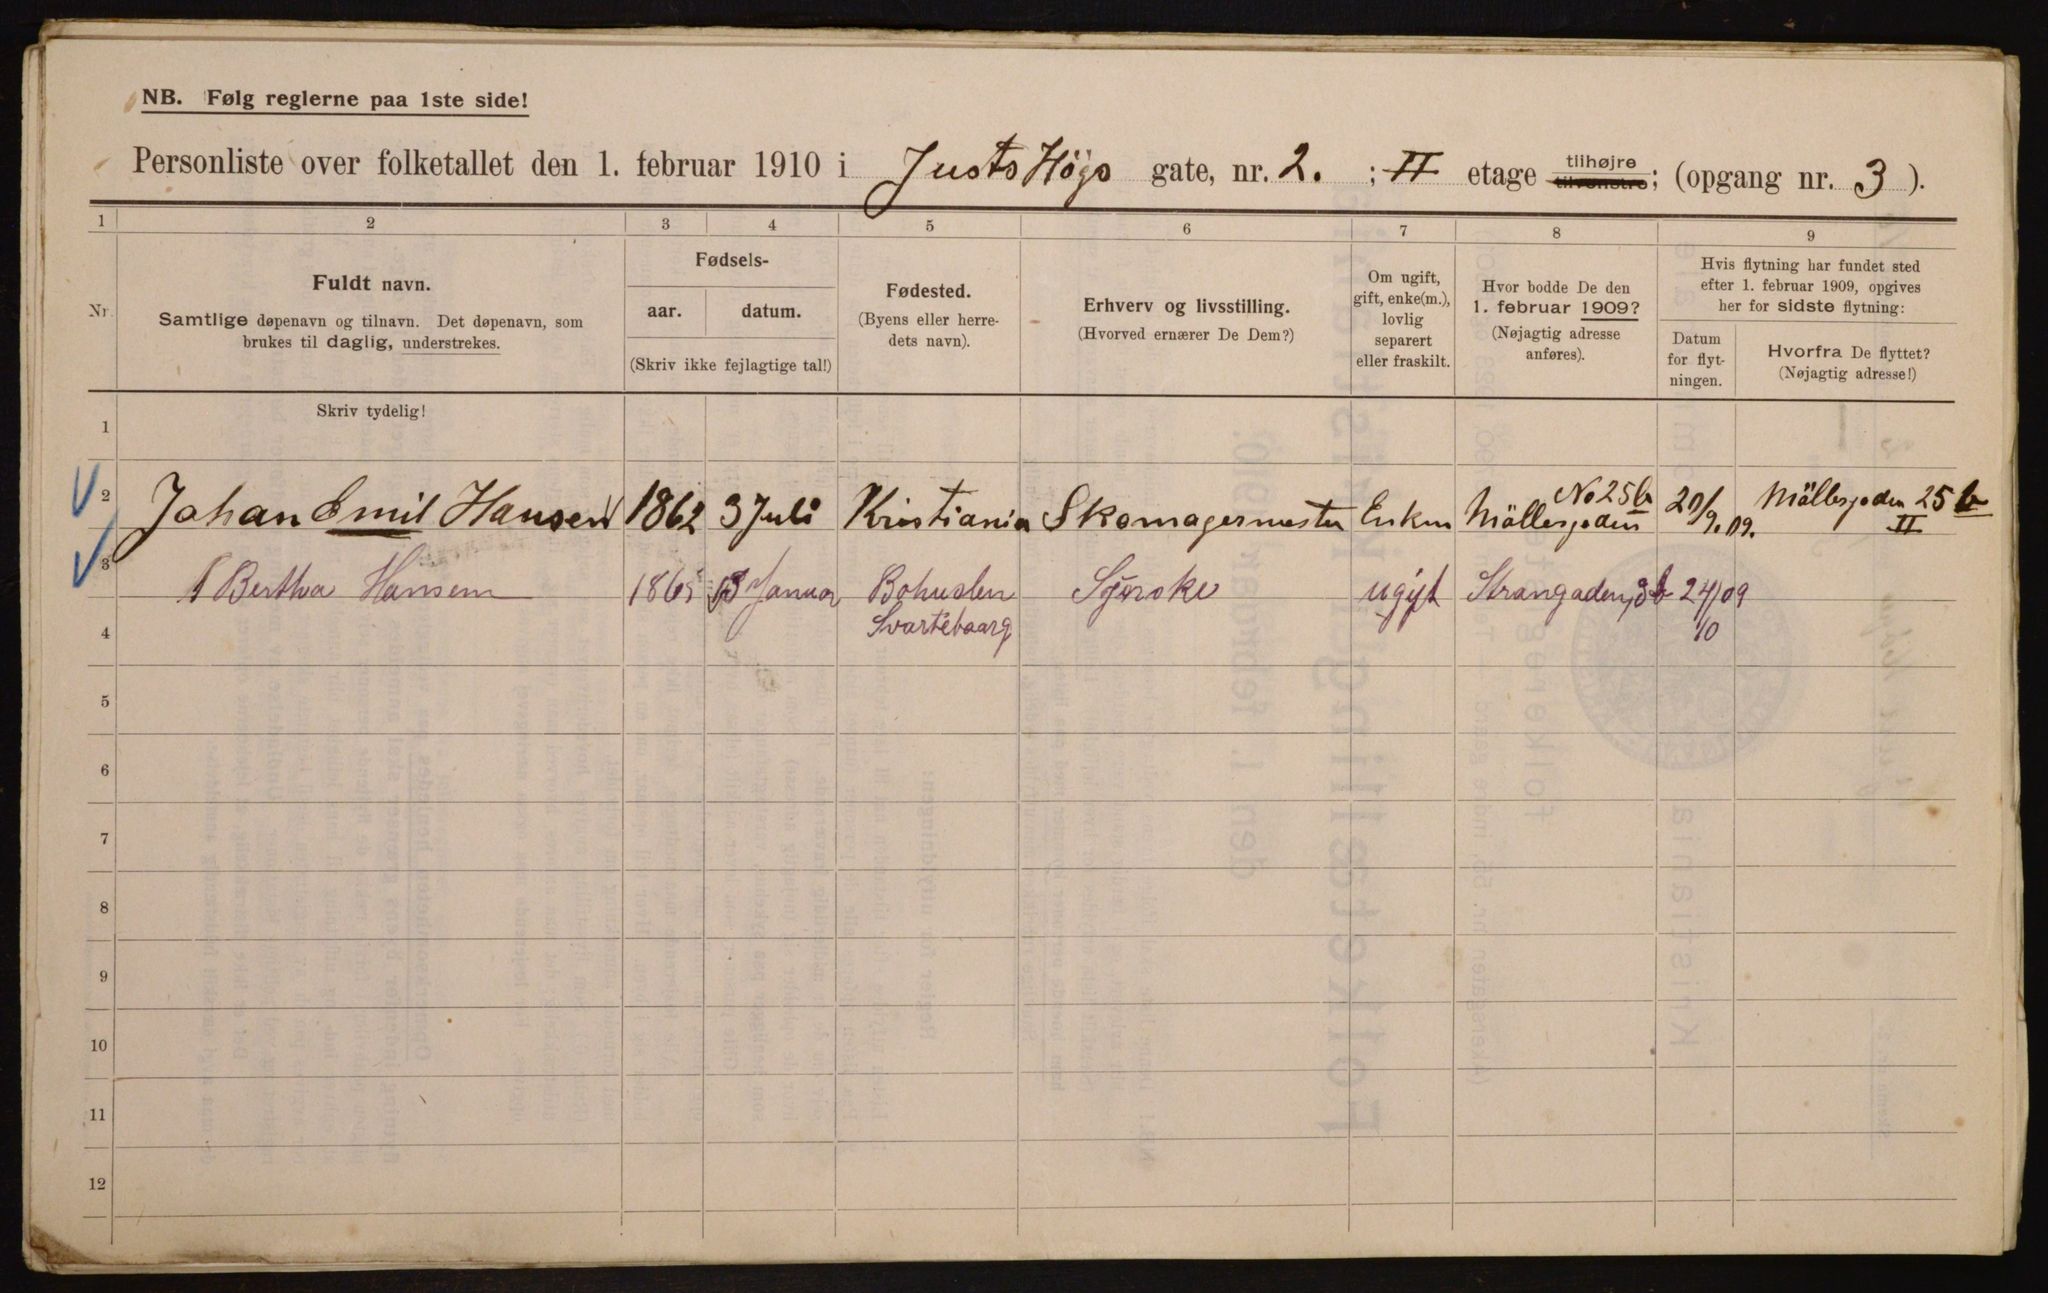 NB. Følg reglerne paa 1ste side!
Personliste over folketallet den 1. februar 1910 i Justs Högs gate, nr. 2. ; II etage tilhøjre tilvenstre; (opgang nr. 3 ).
1 2 3 4 5 6 7 8 9
Nr.
Fuldt navn.
Samtlige døpenavn og tilnavn. Det døpenavn, som
brukes til daglig, understrekes.
Skriv tydelig!
Fødsels-
aar. datum.
(Skriv ikke fejlagtige tal!)
Fødested.
(Byens eller herre-
dets navn).
Erhverv og livsstilling.
(Hvorved ernærer De Dem?)
Om ugift,
gift, enke(m.),
lovlig
separert
eller fraskilt.
Hvor bodde De den
1. februar 1909?
(Nøjagtig adresse
anføres).
Hvis flytning har fundet sted
efter 1. februar 1909, opgives
her for sidste flytning:
Datum
for flyt-
ningen.
Hvorfra De flyttet?
(Nøjagtig adresse!)
1
2 Johan Emil Hansen 1862 3 Juli Kristiania Skomagermester Enkm Möllergaden No 25 b 20/9.09. Möllergaden 25 b
II
3 Bertha Hansen 1865 13 Januar Bohuslen Strangaden, 8b 24/09
4 Svarteboarg 10
ugift
5
6
7
8
9
10
11
12